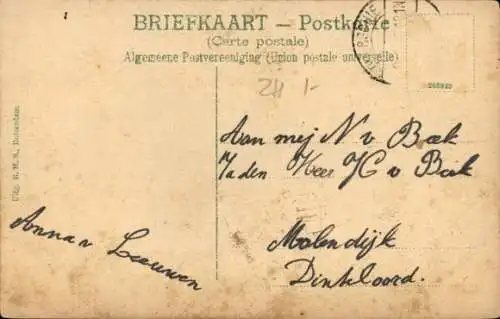 BRIEFKAART – Postkarte
(Carte postale)
Algemeene Postvereeniging (Union postale universelle)
ZH 1-
Aan mej N v Bæk
Uitg. R. M. S., Rotterdam.
Anna v Leeuwen
Molendijk
Dinteloord.